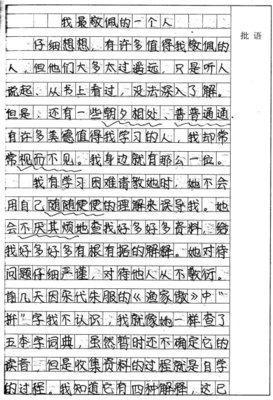 我最敬佩的一个人
批语
仔细想想，有许多值得我敬佩的
人，但他们大多太过遥远，只是听人
说起、从书上看过，没法深入了解。
但是，还有一些朝夕相处、普普通通，
有许多美德值得我学习的人，我却常
常视而不见。我身边就有那么一位。
我有学习困难请教她时，她不会
用自己随随便便的理解来误导我。她
会不厌其烦地查找好多好多资料，给
我好多好多有根有据的解释。她对待
问题仔细严谨，对待他人从不敷衍。
几天因宋代朱服的《渔家傲》中“
字我不认识，我就像她一样查了
五本字词典，虽然暂时还不确定它的
读音，但是收集资料的过程就是自学
的过程。我知道它有四种解释，这已